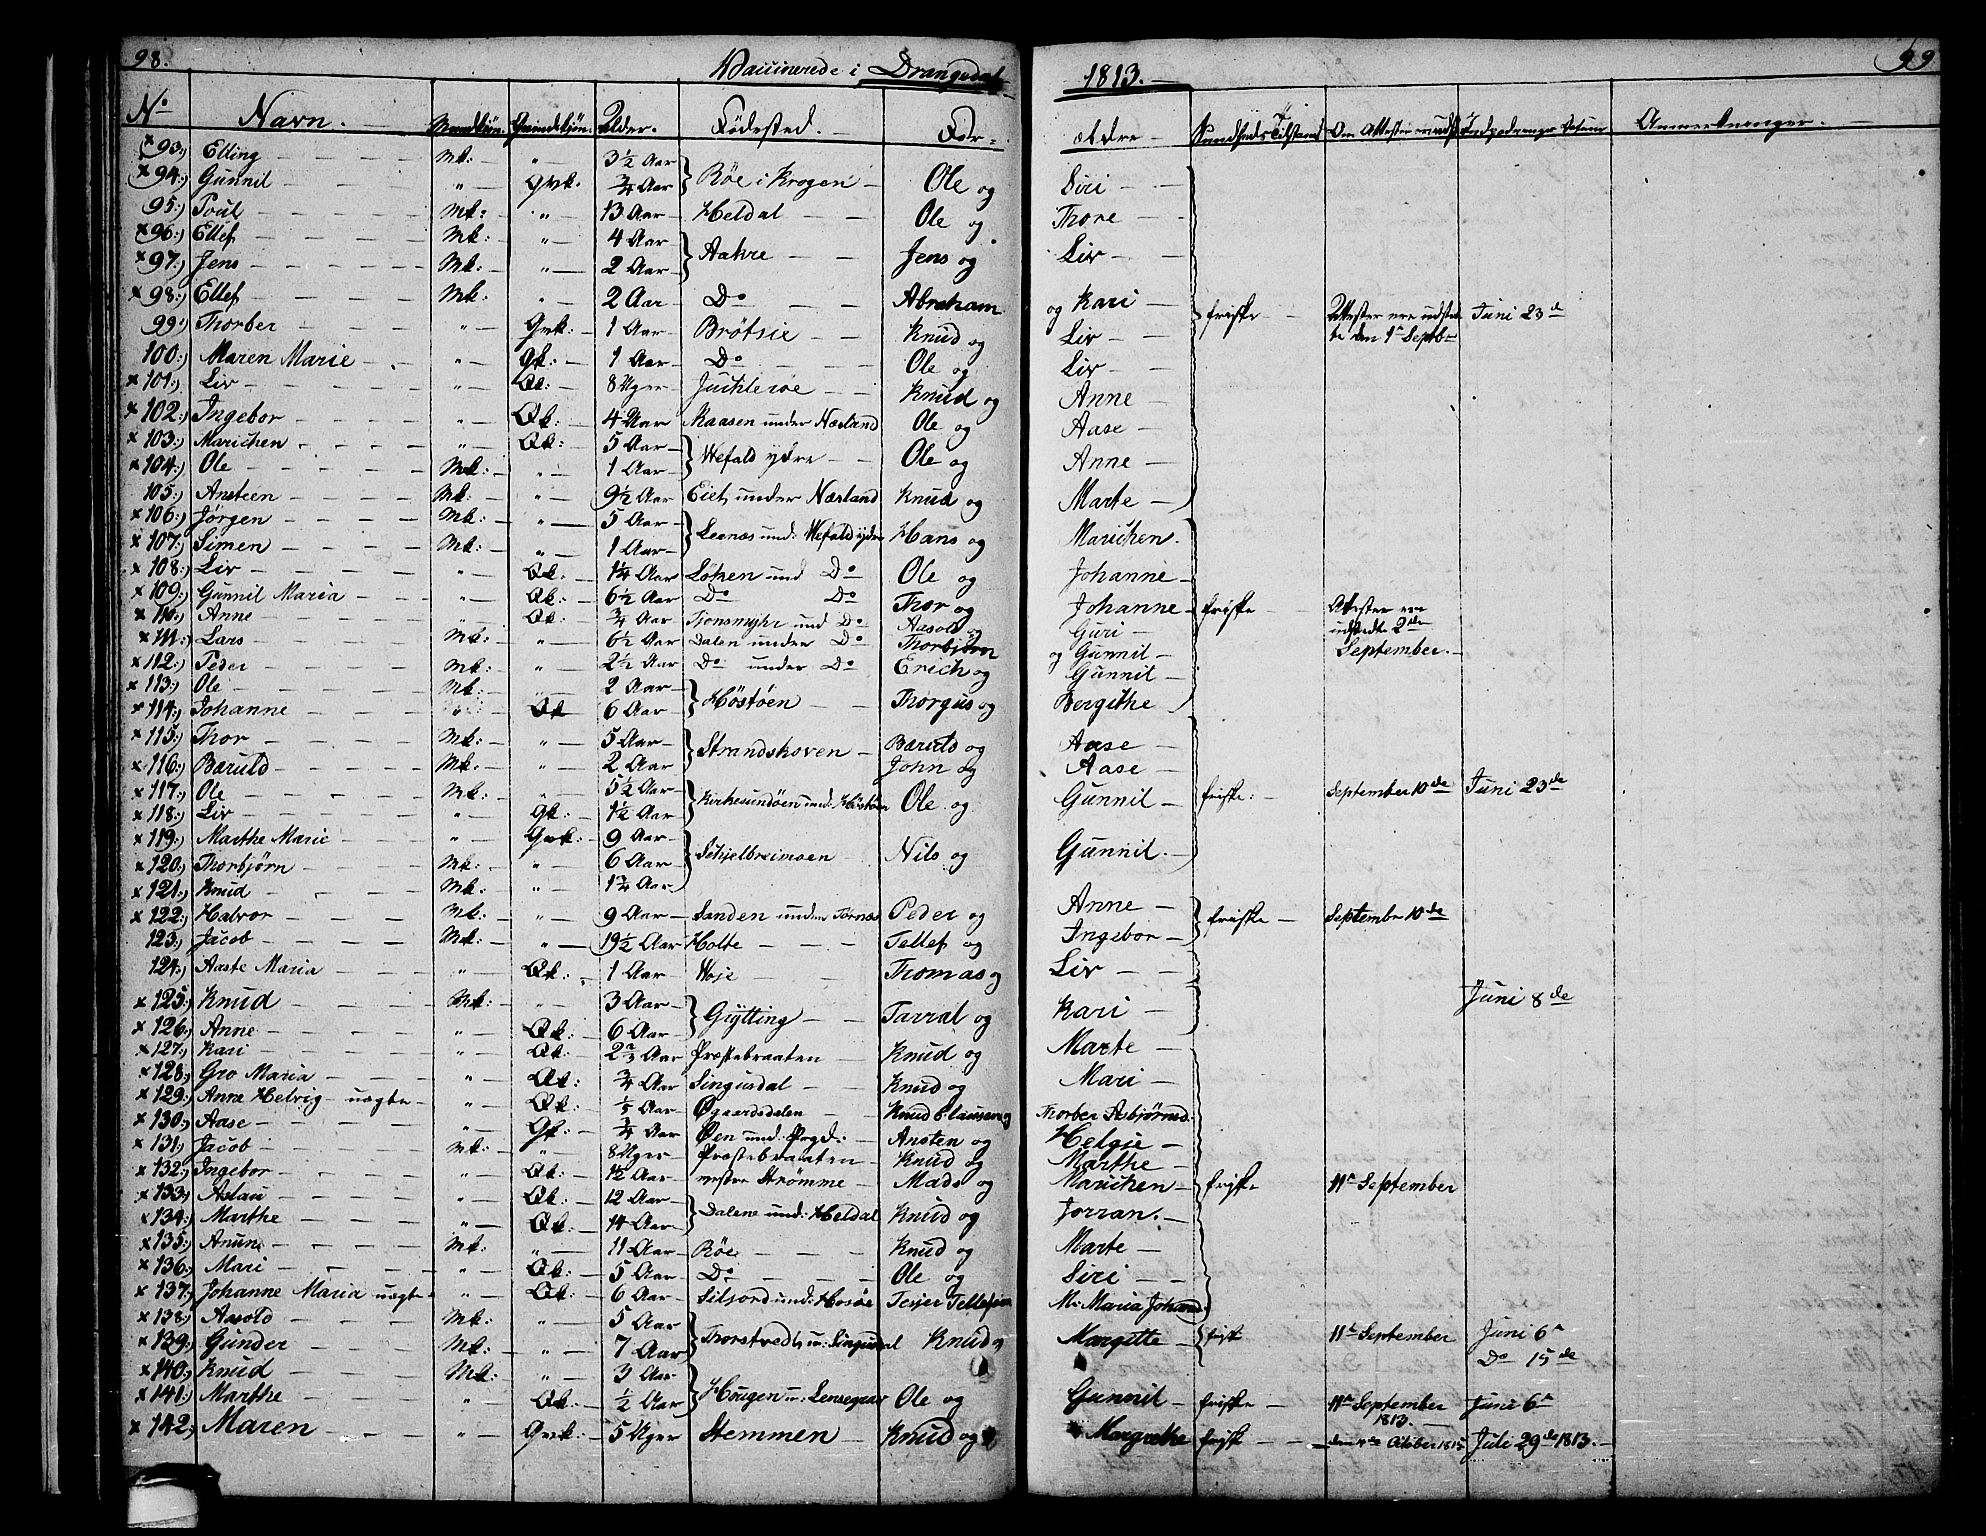 98. Vaccinerede i Drangedal 1813. 99
No Navn. Mandkjön. Qvindekjön. Alder. Födested. For- ældre Sundheds Tilstand Om Attester ere udst. Indpodnings Datum Anmerkninger.
93) Elling Mk: " 3½ Aar Röe i Krogen Ole og Siri
94) Gunnil " Qvk. ¾ Aar
95) Poul Mk: " 13 Aar Heldal Ole og Thore
96) Ellef Mk: " 4 Aar Aakre Jens og Liv
97) Jens Mk: " 2 Aar
98) Ellef Mk: " 2 Aar Do Abraham og Kari friske Attester ere udsted- te den 1ste Septbr Juni 23de
99) Thorber " Qvk: 1 Aar Brötsie Knud og Liv
100) Maren Marie " Qk: 1 Aar Do Ole og Liv
101) Liv " Qk: 8 Uger Knud og Anne
102) Ingebor " Qk: 4 Aar Kaasen under Næsland Ole og Aase
103) Marichen " Qk: 5 Aar Wefald ydre Ole og Anne
104) Ole Mk: " 1 Aar
105) Ansteen Mk: " 9½ Aar Eiet under Næsland Knud og Marte
106) Jörgen Mk: " 5 Aar Leenæs und: Wefald ydre Hans og Marichen.
107) Simen Mk: " 1 Aar
108) Liv " Qk: 1¼ Aar Löken und Do Ole og Johanne
109) Gunnil Maria " Qk: 6½ Aar Do Do Thor og Johanne friske Attester ere udstedte 2de September.
110) Anne " Qk: ¾ Aar Tjonsmyhr und Do Aasold og Guri
111) Lars Mk: " 6½ Aar Dalen under Do Thorbjörn og Gunnil
112) Peder Mk: " 2½ Aar Do under Do Erich og Gunnil
113) Ole Mk: " 2 Aar Höstöen Thorgus og Bergithe
114) Johanne " Qk 6 Aar
115) Thor Mk: " 5 Aar Strandskoven Bæruld og Aase
116) Bæruld Mk: " 2 Aar John og Aase
117) Ole Mk: " 5½ Aar Kirkesundöen und: Höstöen Ole og Gunnil friske: September 10de Juni 23de
118) Liv " Qk: 1½ Aar
119) Marthe Marie " Qvk: 9 Aar Schjelbreimoen Nils og Gunnil.
120) Thorbjörn Mk: " 6 Aar
121) Knud Mk: " 1¾ Aar
122) Halvor Mk: " 9 Aar Sanden under Tornæs Peder og Anne friske Septembr 10de
123) Jacob Mk: " 19½ Aar Holte Tellef og Ingebor
124) Aaste Maria " Qk: 1 Aar Woje Thomas og Liv
125) Knud Mk: " 3 Aar Gytting Tarral og Kari Juni 8de
126) Anne " Qk: 6 Aar
127) Kari " Qk: 2⅔ Aar Præstebraaten Knud og Marte
128) Gro Maria " Qk: ¾ Aar Singusdal Knud og Mari
129) Anne Helvig uægte " Qk: ⅕ Aar Øgaardsdalen Knud Clausen og Thorber Asbjörnsd:
130) Aase " Qk: ¾ Aar Øen und: Prgd: Ansten og Helgie
131) Jacob Mk: " 8 Uger Præstebraaten Knud og Marthe
132) Ingebor " Qk: 1½ Aar nestre Strömme Mads og Marichen friske 11te September
133) Aslau " Qk: 12 Aar Dalene und: Heldal Knud og Jorran.
134) Marthe " Qk: 14 Aar
135) Anune Mk: " 11 Aar Röe Knud og Marte
136) Mari " Qk: 5 Aar Do Ole og Siri
137) Johanne Maria uægte " Qk: 6 Aar Siljord und: Hosöe Terjer Tellefsen M: Maria Johansd.
138) Aasold Mk: " 5 Aar Thorstvedt u: Singusdal Knud og Margitte frisk 11te September Juni 6te
139) Gunder Mk: " 7 Aar Do 15de
140) Knud Mk: " 3 Aar Hougen u: Lensegrav Ole og Gunnil friske 11te September 1813. Juni 6te
141) Marthe " Qk: ½ Aar
142) Maren " Qvk: 5 Uger Stemmen Knud og Margrethe friske den 4de October 1813 Juli 29de 1813.